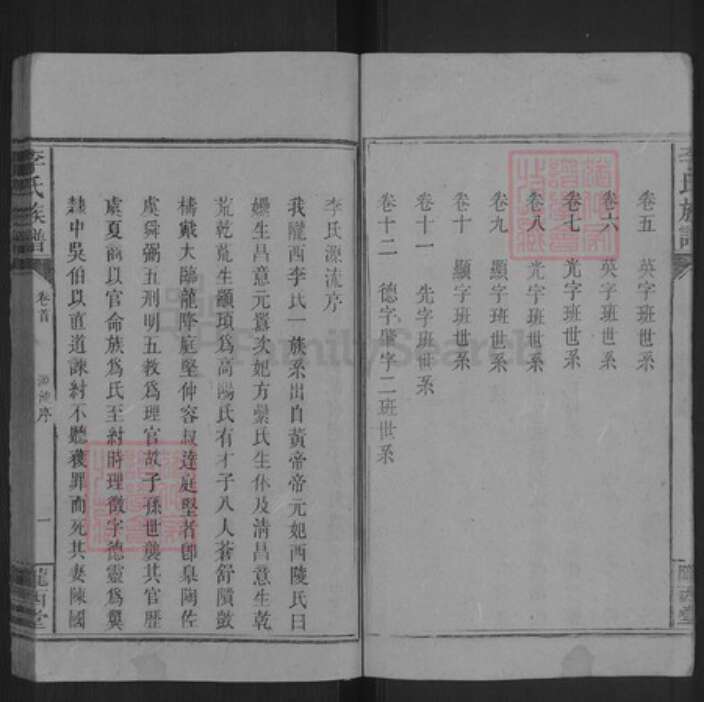 李氏族譜
隴西堂
卷五　英字班世系
卷六　英字班世系
卷七　光字班世系
卷八　光字班世系
卷九　顯字班世系
卷十　顯字班世系
卷十一　先字班世系
卷十二　德字肇字二班世系
李氏源流序
我隴西李氏一族系出自黃帝帝元妃西陵氏曰
嫘生昌意元囂次妃方纍氏生休及清昌意生乾
荒乾荒生顓頊為高陽氏有才子八人蒼舒隤敱
檮戭大臨龍降庭堅仲容叔達庭堅者即皋陶佐
虞舜弼五刑明五教為理官故子孫世襲其官歷
虞夏商以官命族為氏至紂時理徵字德靈為翼
隸中吳伯以直道諫紂不聽獲罪而死其妻陳國
李氏族譜
卷首
源流序
一
隴西堂
FamilySearch